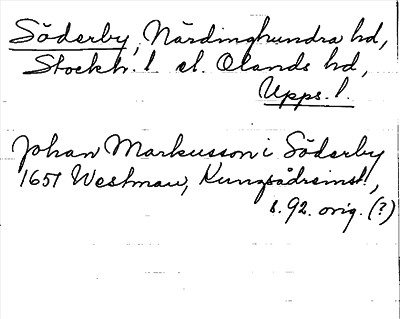 Söderby, Närdinghundra hd,
Stockh. l el. Olands hd,
Upps. l.
Johan Markusson i Söderby
1651 Westman, Kungsådreinst.,
s. 92. orig. (?)